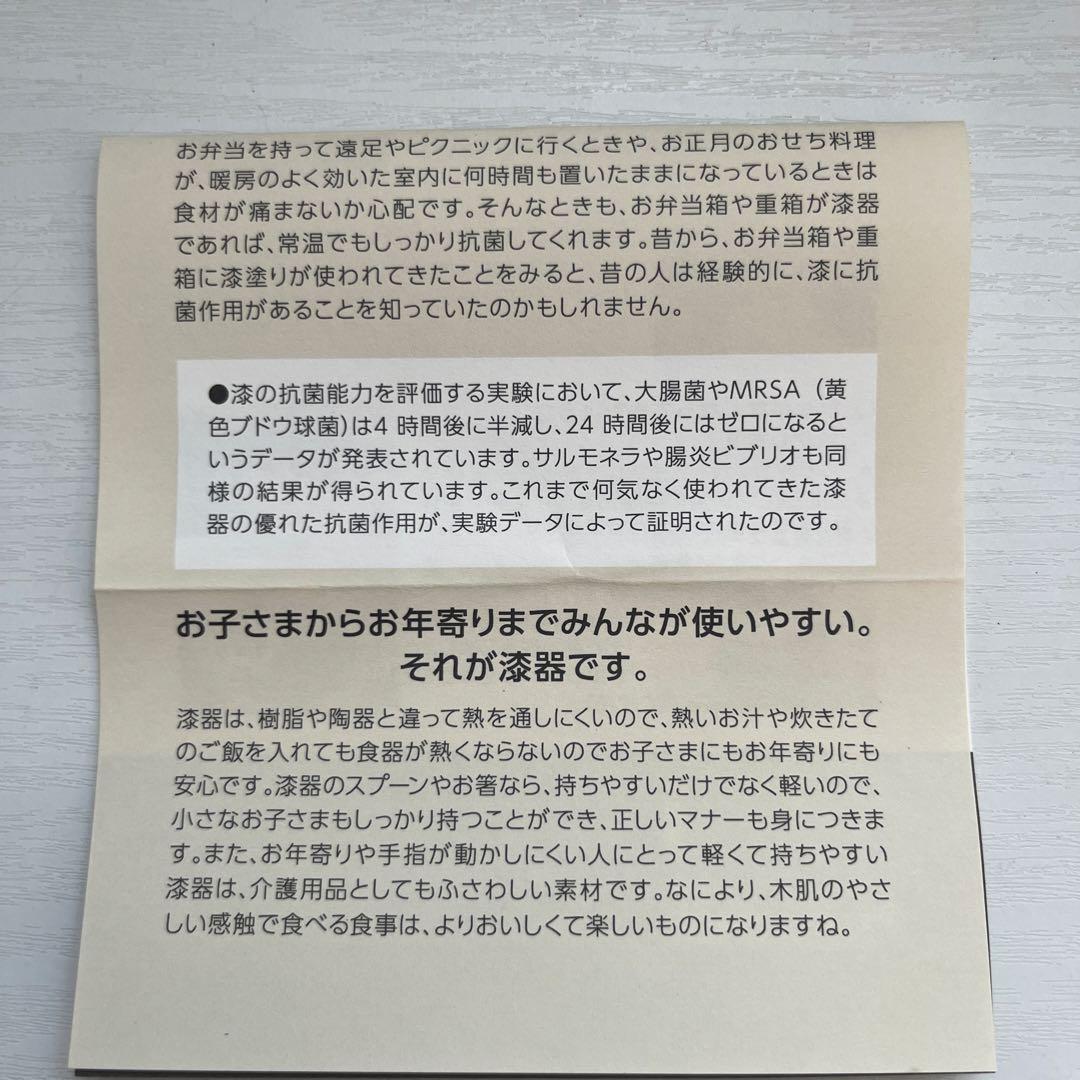 お弁当を持って遠足やピクニックに行くときや、お正月のおせち料理
が、暖房のよく効いた室内に何時間も置いたままになっているときは
食材が痛まないか心配です。そんなときも、お弁当箱や重箱が漆器
であれば、常温でもしっかり抗菌してくれます。昔から、お弁当箱や重
箱に漆塗りが使われてきたことをみると、昔の人は経験的に、漆に抗
菌作用があることを知っていたのかもしれません。
●漆の抗菌能力を評価する実験において、大腸菌やMRSA（黄
色ブドウ球菌）は4 時間後に半減し、24 時間後にはゼロになると
いうデータが発表されています。サルモネラや腸炎ビブリオも同
様の結果が得られています。これまで何気なく使われてきた漆
器の優れた抗菌作用が、実験データによって証明されたのです。
お子さまからお年寄りまでみんなが使いやすい。
それが漆器です。
漆器は、樹脂や陶器と違って熱を通しにくいので、熱いお汁や炊きたて
のご飯を入れても食器が熱くならないのでお子さまにもお年寄りにも
安心です。漆器のスプーンやお箸なら、持ちやすいだけでなく軽いので、
小さなお子さまもしっかり持つことができ、正しいマナーも身につきま
す。また、お年寄りや手指が動かしにくい人にとって軽くて持ちやすい
漆器は、介護用品としてもふさわしい素材です。なにより、木肌のやさ
しい感触で食べる食事は、よりおいしくて楽しいものになりますね。